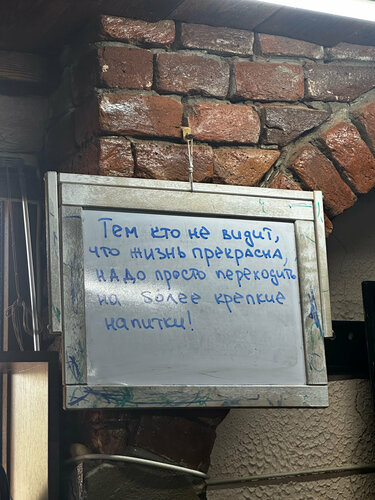 Тем кто не видит,
что жизнь прекрасна,
надо просто переходить
на более крепкие
напитки!